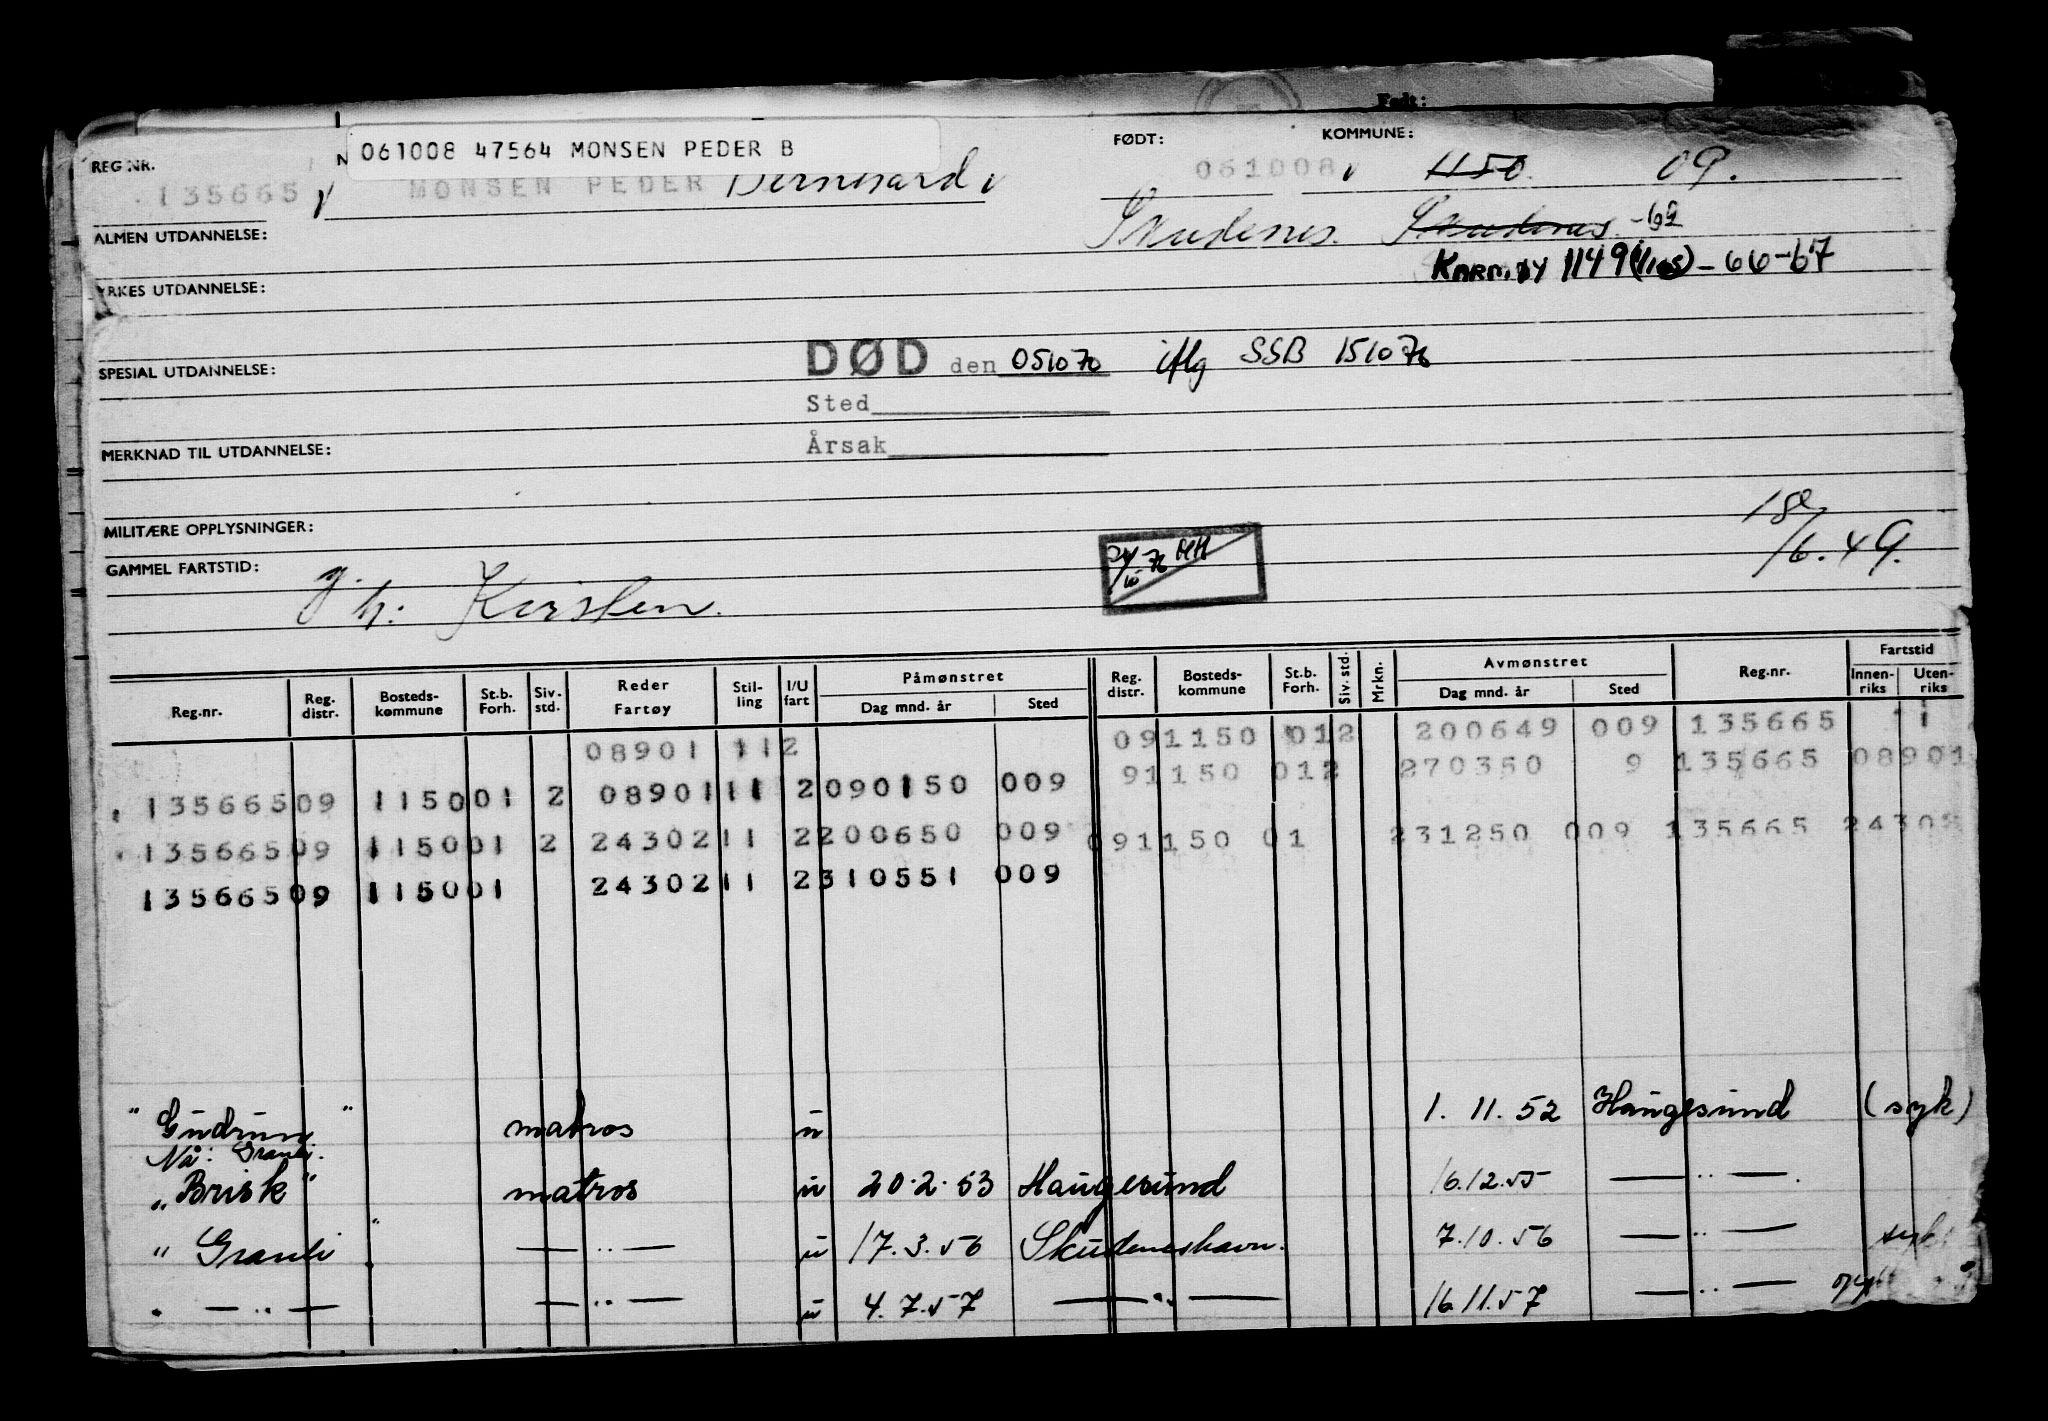 Født:
REG.NR. N 061008 47564 MONSEN PEDER B FØDT: KOMMUNE:
135665 MONSEN PEDER Bernhard 061008 1150. 09.
ALMEN UTDANNELSE: Skudenes. Skudenes.
Karmøy 1149 - 66-67
YRKES UTDANNELSE:
SPESIAL UTDANNELSE: DØD den 051070 iflg SSB 151076
Sted
MERKNAD TIL UTDANNELSE: Årsak
MILITÆRE OPPLYSNINGER:
GAMMEL FARTSTID: /6.49.
Kirsten.
Reg.nr. Reg. distr. Bosteds- kommune St.b. Forh. Siv. std. Reder Fartøy Stil- ling I/U fart Påmønstret Dag mnd. år Sted Reg. distr. Bosteds- kommune St.b. Forh. Siv. std. Mrkn. Avmønstret Dag mnd. år Sted Reg.nr. Fartstid Innen- riks Uten- riks
08901 112 091150 012 200649 009 135665 1
13566509 115001 2 0890111 2090150 009 91150 012 270350 9 135665 08901
13566509 115001 2 2430211 2200650 009 091150 01 231250 009 135665 24302
13566509 115001 2430211 2310551 009
"Gudrun" matros u 1. 11. 52 Haugesund (syk)
Nå: Granli.
"Brisk" matros u 20.2.53 Haugesund 16.12.55 — " —.
"Granli" — " — u 17.3.56 Skudeneshavn. 7.10.56 — " — syk
— " — — " — u 4.7.57 — " — 16.11.57 — " —